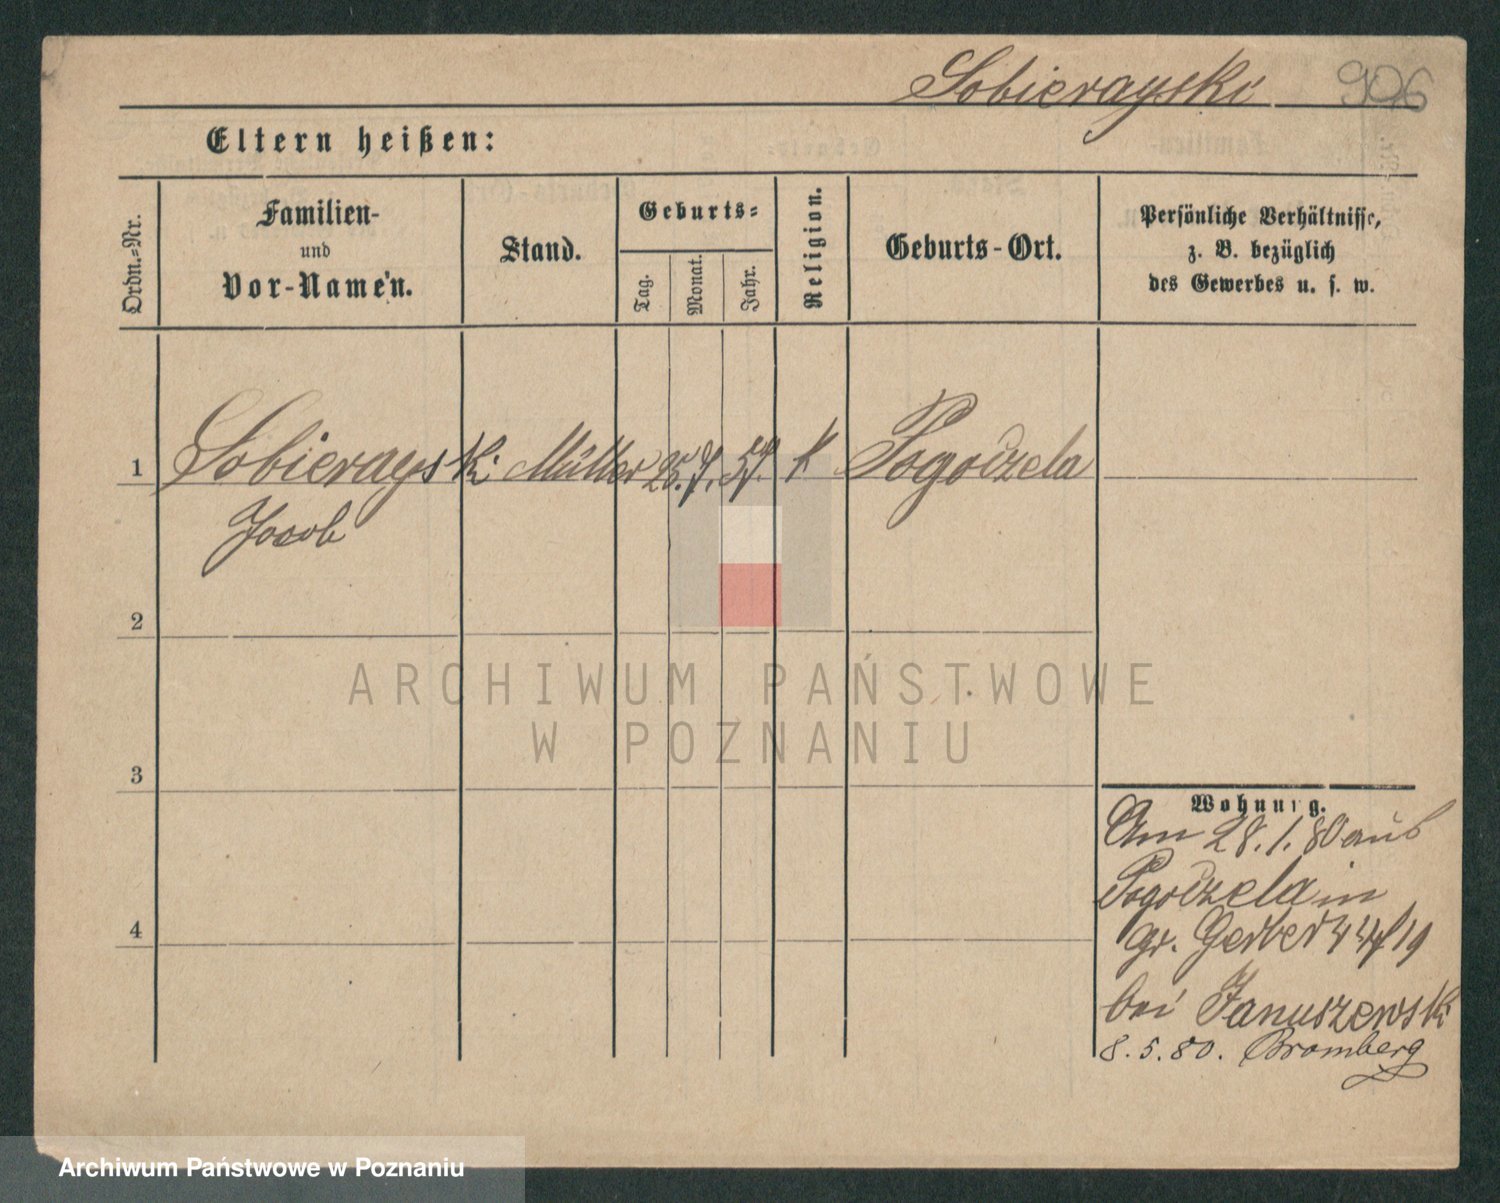 Sobierayski 906
Eltern heißen:
Ordn.-Nr.
Familien-
und
Vor-Namen.
Stand.
Geburts-
Tag.
Monat.
Jahr.
Religion.
Geburts-Ort.
Persönliche Verhältnisse,
z. B. bezüglich
des Gewerbes u. s. w.
1 Sobierayski Müller 25. 7. 57. k Pogorzela
Jacob
2
3
4
ARCHIWUM PAŃSTWOWE
W POZNANIU
Wohnung.
Am 28. 1. 80 aus
Pogorzela in
gr. Gerber
bei Januszewski
8. 5. 80. Bromberg
Archiwum Państwowe w Poznaniu